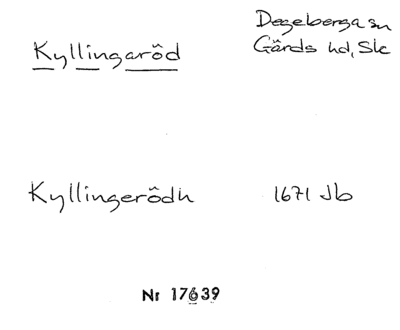 Kyllingaröd
Degeberga sn
Gärds hd, Sk
Kyllingerödh
1671 Jb
Nr 17639